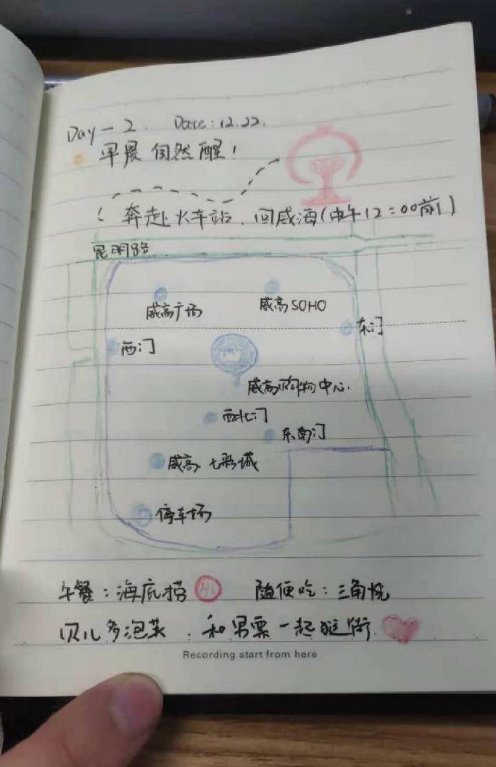 Day-2. Date:12.22.
早晨 自然醒!
奔赴火车站, 回威海(中午12:00前)
昆明路
威高广场
威高SOHO
东门
西门
威高购物中心.
西北门
东南门
威高 七彩城
停车场
午餐:海底捞 随便吃:三角烧
贝儿多泡芙. 和男票一起逛街
Recording start from here